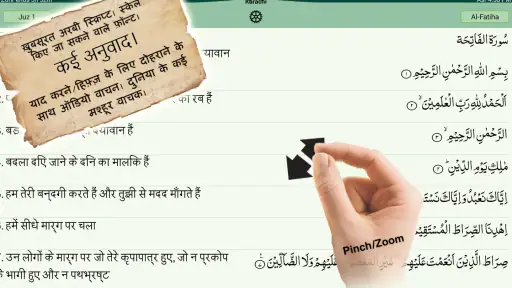 Juz 1
Karachi
Al-Fatiha
ख़ूबसूरत अरबी स्क्रिप्ट। स्केल
किए जा सकने वाले फॉन्ट।
कई अनुवाद।
याद करने/हिफ्ज़ के लिए दोहराने के
साथ ऑडियो वाचन। दुनिया के कई
मशहूर वाचक।
سُورَة الْفَاتِحَة
यावान
بِسْمِ اللهِ الرَّحْمٰنِ الرَّحِيْمِ ①
का रब हैं
اَلْحَمْدُ لِلّٰهِ رَبِّ الْعٰلَمِيْنَ ②
दयावान हैं
الرَّحْمٰنِ الرَّحِيْمِ ③
. बदला दिए जाने के दिन का मालिक हैं
مٰلِكِ يَوْمِ الدِّيْنِ
. हम तेरी बन्दगी करते हैं और तुझी से मदद माँगते हैं
اِيَّاكَ نَعْبُدُ وَاِيَّاكَ
. हमें सीधे मार्ग पर चला
اِهْدِنَا الصِّرَاطَ
. उन लोगों के मार्ग पर जो तेरे कृपापात्र हुए, जो न प्रकोप
के भागी हुए और न पथभ्रष्ट
صِرَاطَ الَّذِيْنَ اَنْعَمْتَ عَلَيْهِمْ عَلَيْهِمْ وَلَا الضَّآلِّيْنَ
Pinch/Zoom